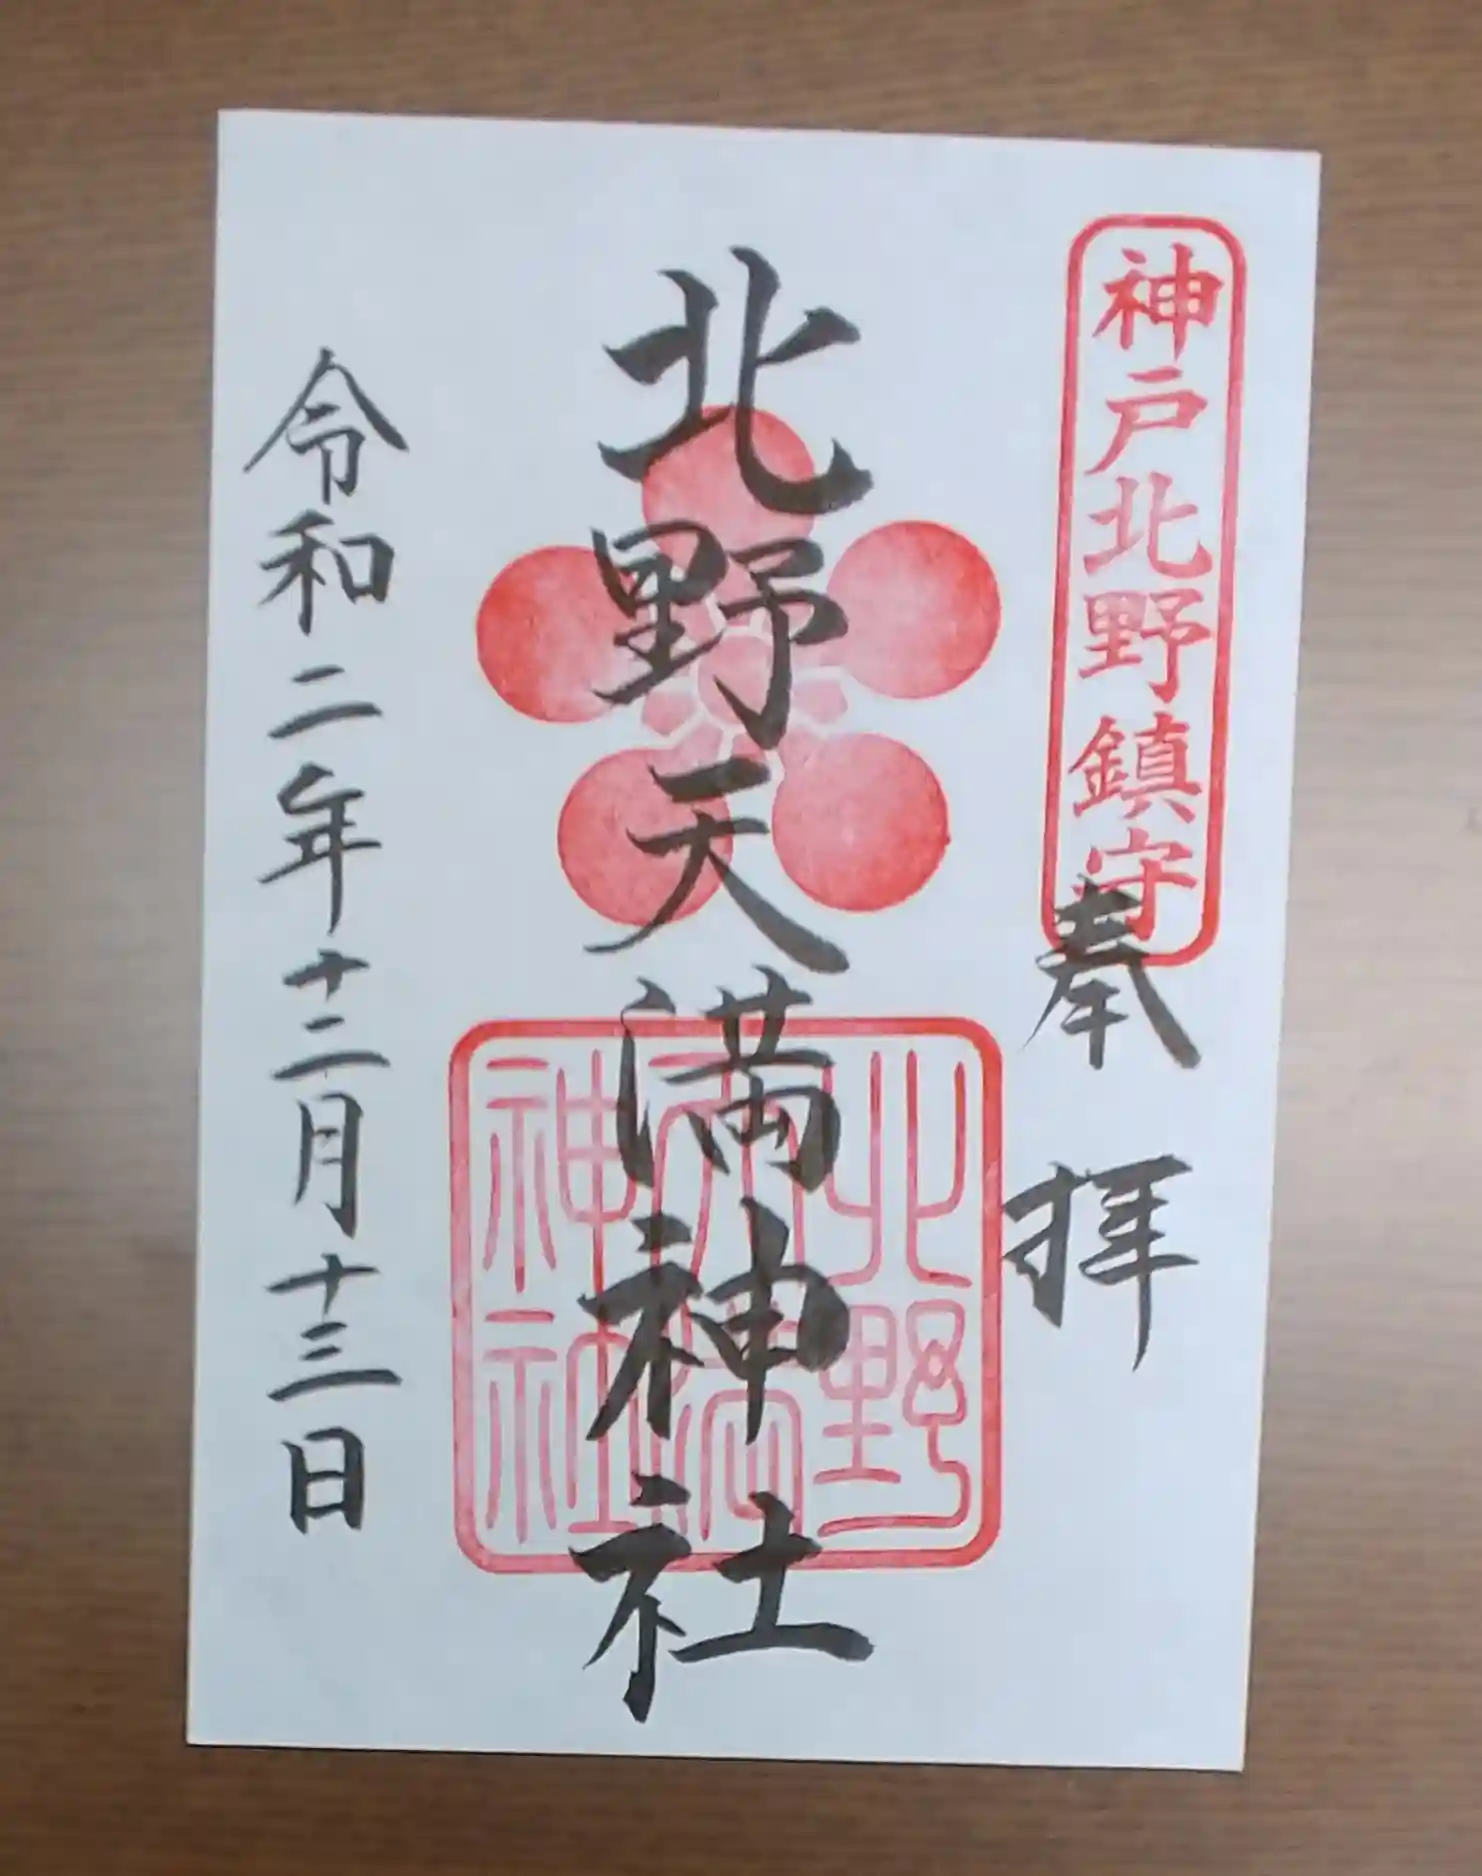 神戸北野鎮守
奉拝
北野天満神社
北野
天満
神社
令和二年十二月十三日